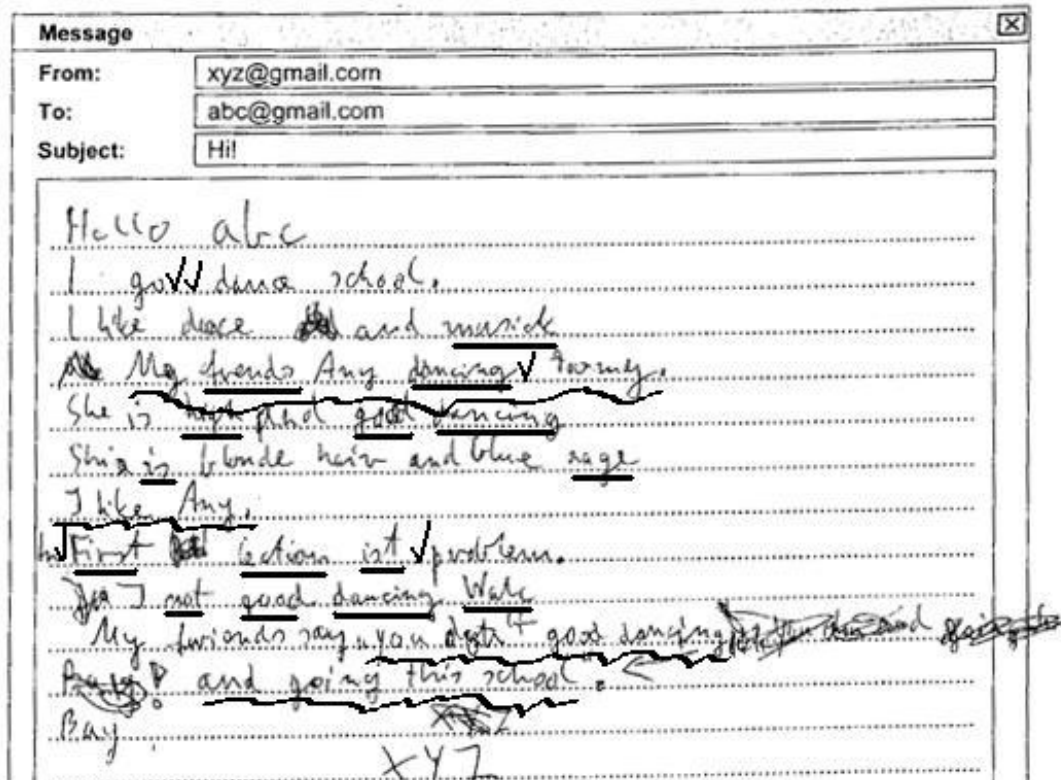 Message
From: xyz@gmail.com
To: abc@gmail.com
Subject: Hi!
Hello abc
I go dance school.
I like dace and musick
My frends Any dancing
She is high and good dancing
is blonde hair and blue
I like Any.
First lection ist problem.
I not good dancing
My friends say "you good dancing
and going this school".
Bay!
XYZ